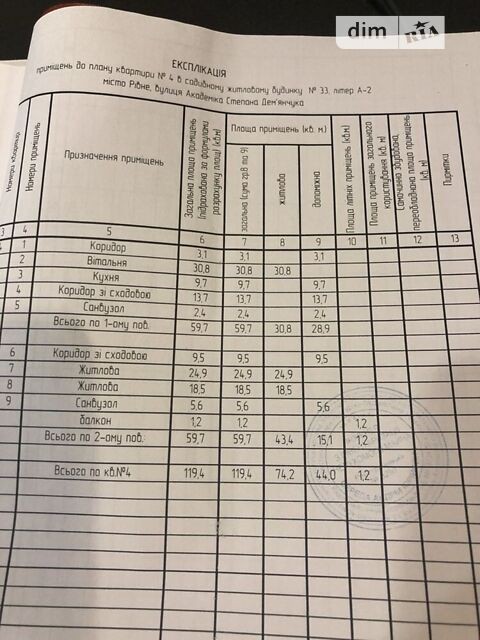 dim RIA
ЕКСПЛІКАЦІЯ
приміщень до плану квартири № 4 в садибному житловому будинку № 33, літер А-2
місто Рівне, вулиця Академіка Степана Дем'янчука
Номери квартир
Номери приміщень
Призначення приміщень
Загальна площа приміщень (підрахована за формулами розрахунку площ) (кв.м)
Площа приміщень (кв. м)
загальна (сума гр.8 по 9)
житлова
допоміжна
Площа літніх приміщень (кв.м)
Площа приміщень загального користування (кв. м)
Самочинно збудована, переобладнана площа приміщень (кв. м)
Примітки
3 4 5 6 7 8 9 10 11 12 13
4 1 Коридор 3,1 3,1 3,1
2 Вітальня 30,8 30,8 30,8
3 Кухня 9,7 9,7 9,7
4 Коридор зі сходовою 13,7 13,7 13,7
5 Санвузол 2,4 2,4 2,4
Всього по 1-ому пов. 59,7 59,7 30,8 28,9
6 Коридор зі сходовою 9,5 9,5 9,5
7 Житлова 24,9 24,9 24,9
8 Житлова 18,5 18,5 18,5
9 Санвузол 5,6 5,6 5,6
балкон 1,2 1,2 1,2
Всього по 2-ому пов.: 59,7 59,7 43,4 15,1 1,2
Всього по кв.№4 119,4 119,4 74,2 44,0 1,2